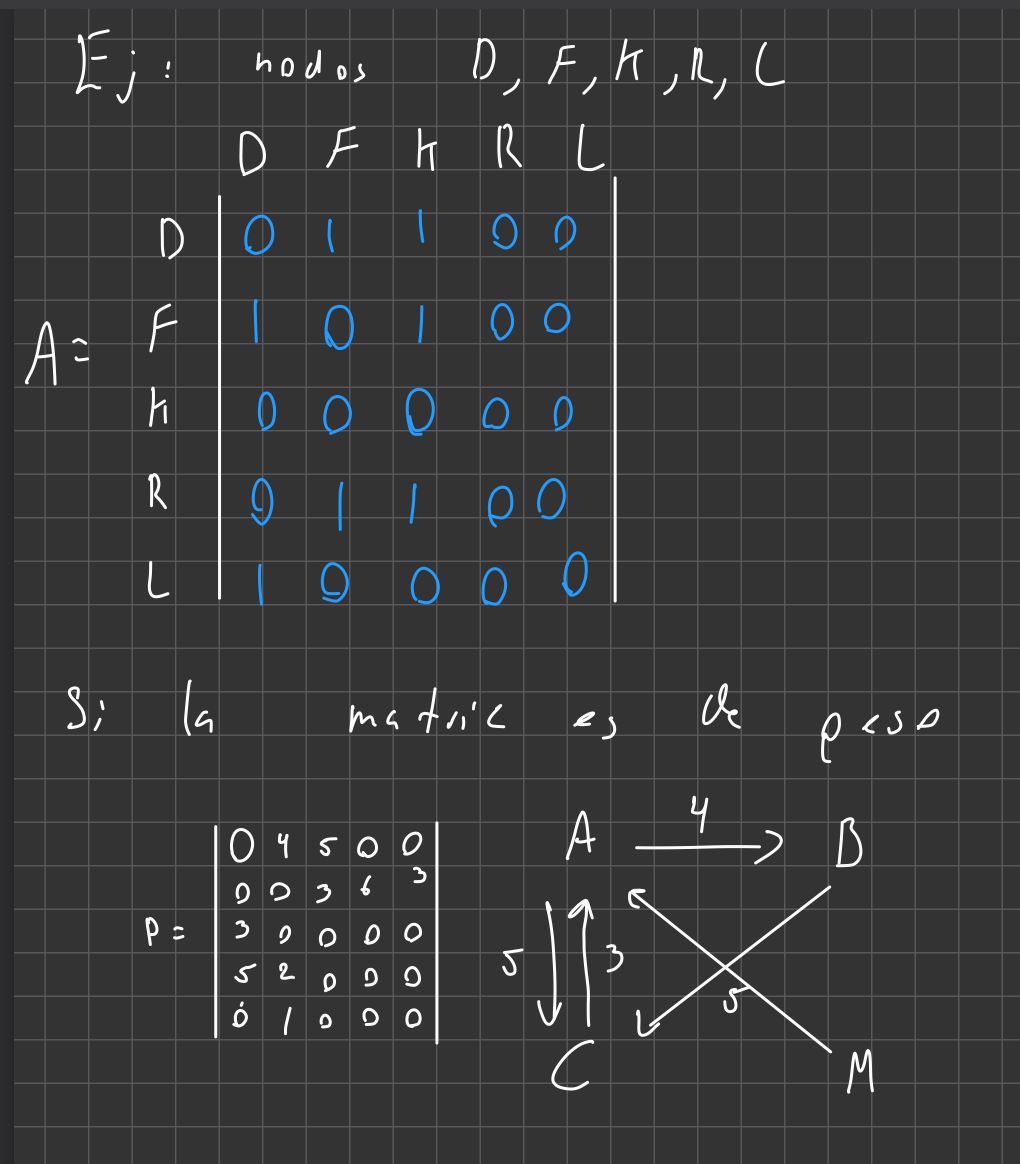 Ej: nodos D, F, K, R, L
D F K R L
D 0 1 1 0 0
F 1 0 1 0 0
A =
K 0 0 0 0 0
R 0 1 1 0 0
L 1 0 0 0 0
Si la matric es de peso
0 4 5 0 0
0 0 3 6 3
P = 3 0 0 0 0
5 2 0 0 0
0 1 0 0 0
A 4 B
5 3 5
C M